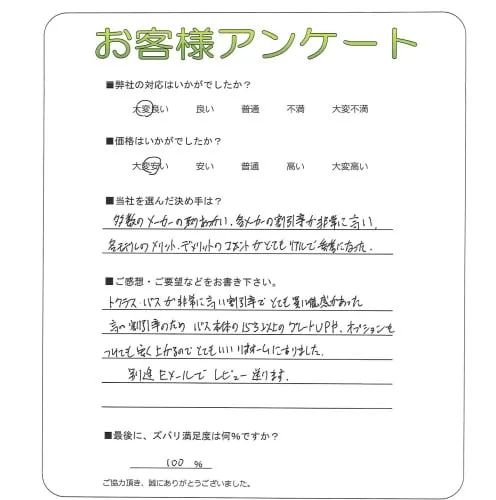 お客様アンケート
■弊社の対応はいかがでしたか？
大変良い 良い 普通 不満 大変不満
■価格はいかがでしたか？
大変安い 安い 普通 高い 大変高い
■当社を選んだ決め手は？
多数のメーカーの取りあつかい、各メーカーの割引率が非常に高い、
各モデルのメリット、デメリットのコメントがとてもリアルで参考になった.
■ご感想・ご要望などをお書き下さい。
トクラス・バスが非常に高い割引率でとても買い得感があった
高い割引率のため バス本体の 以上のグレードUPや、オプションを
つけても安く上がるのでとてもいいリフォームになりました.
別途Eメールでレビュー送ります.
■最後に、ズバリ満足度は何%ですか？
100 %
ご協力頂き、誠にありがとうございました。